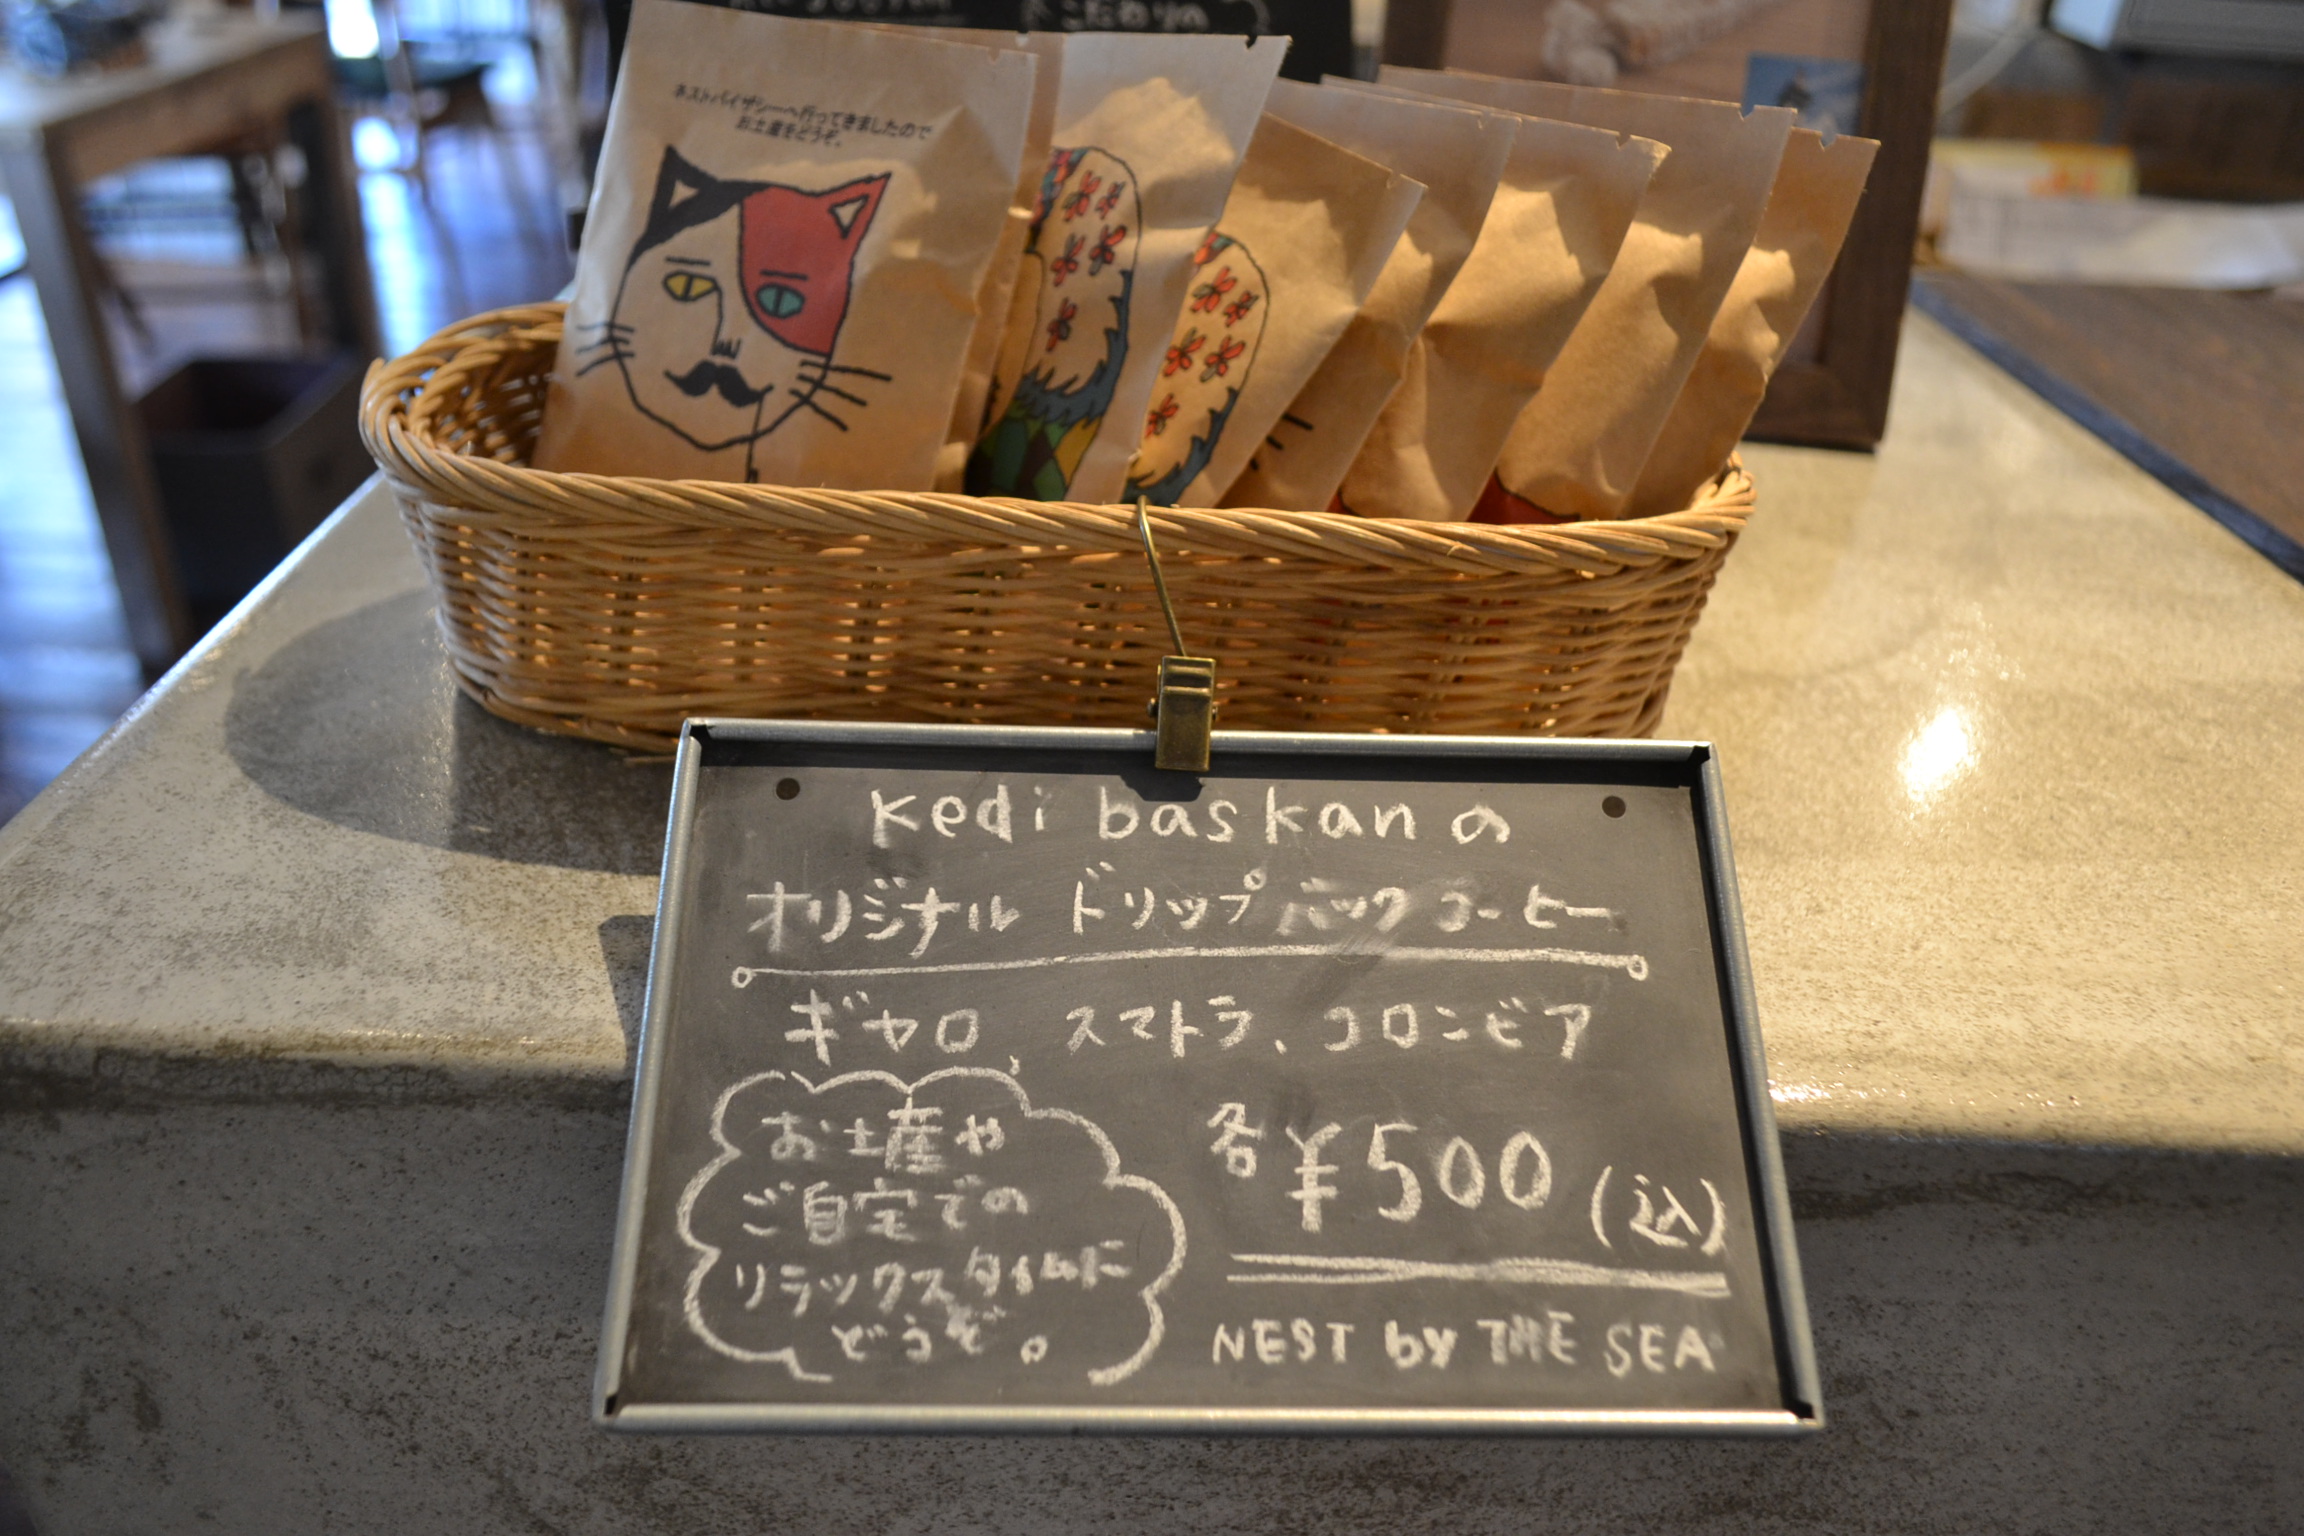 こだわりの
ネストバイザシーへ行ってきましたので
お土産をどうぞ。
kedi baskanの
オリジナル ドリップバックコーヒー
ギャロ、スマトラ、コロンビア
お土産や
ご自宅での
リラックスタイムに
どうぞ。
各¥500(込)
NEST by THE SEA